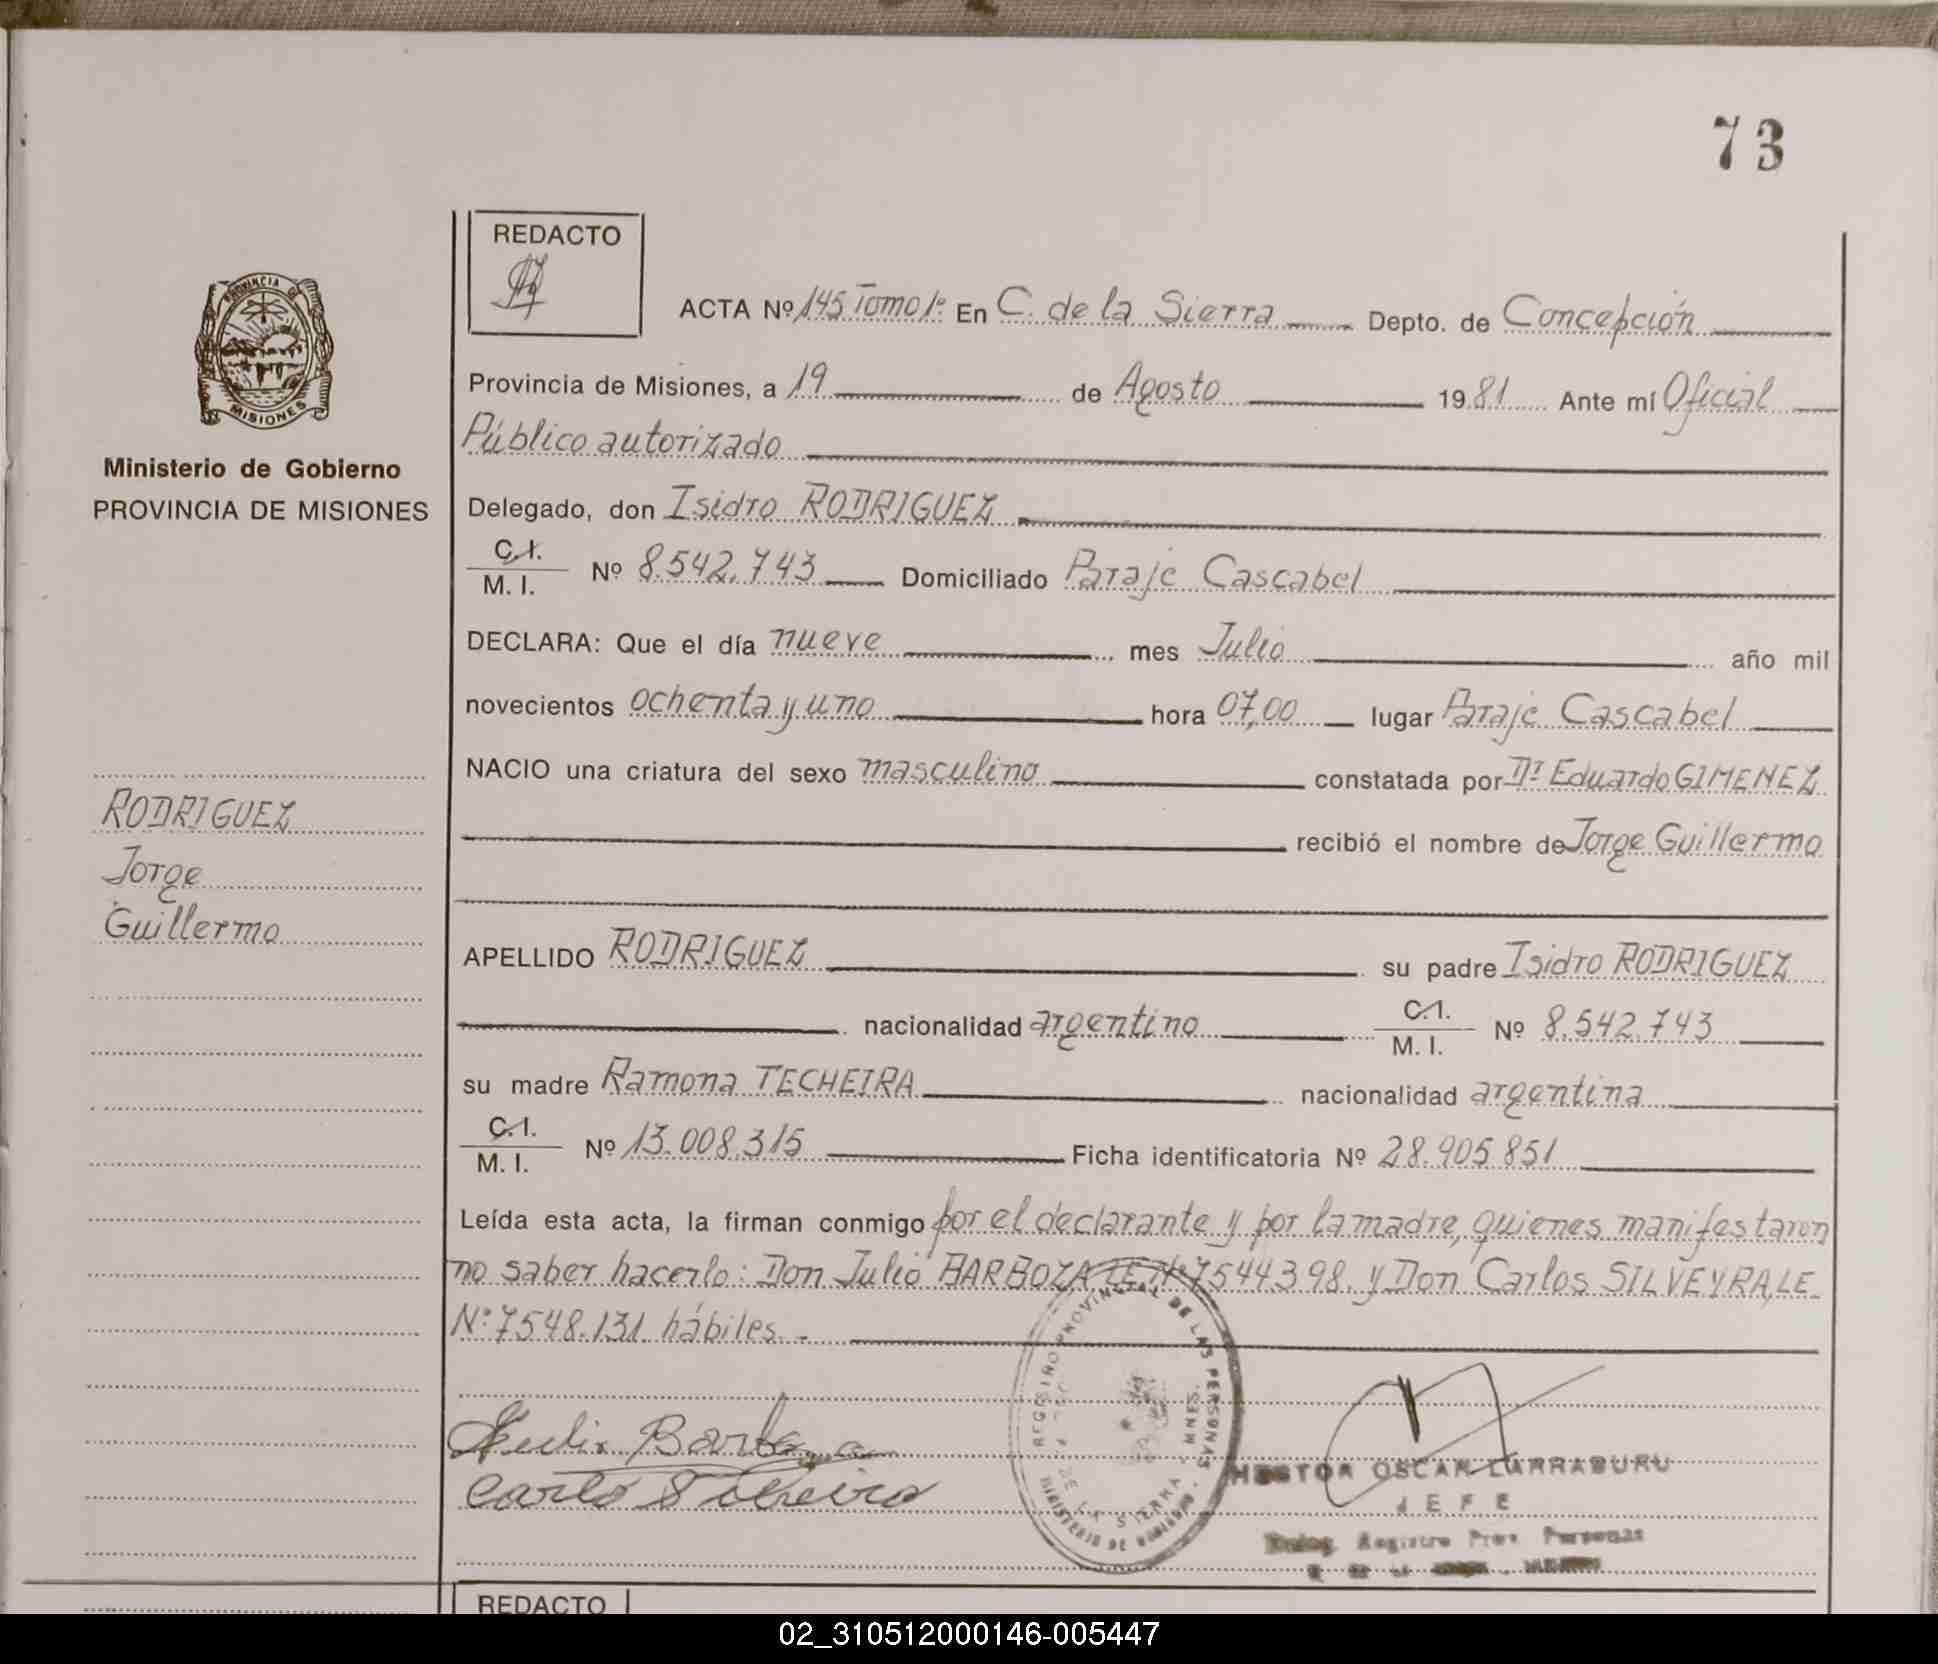 73
REDACTO
PROVINCIA DE
MISIONES
Ministerio de Gobierno
PROVINCIA DE MISIONES
ACTA Nº 145 Tomo 1º En C. de la Sierra Depto. de Concepción
Provincia de Misiones, a 19 de Agosto 1981 Ante mí Oficial
Público autorizado
Delegado, don Isidro RODRIGUEZ
C.I.
M. I. Nº 8.542.743 Domiciliado Paraje Cascabel
DECLARA: Que el día nueve mes Julio año mil
novecientos ochenta y uno hora 07,00 lugar Paraje Cascabel
NACIO una criatura del sexo masculino constatada por Dr Eduardo GIMENEZ
recibió el nombre de Jorge Guillermo
RODRIGUEZ
Jorge
Guillermo
APELLIDO RODRIGUEZ su padre Isidro RODRIGUEZ
nacionalidad argentino C.I. M. I. Nº 8.542.743
su madre Ramona TECHEIRA nacionalidad argentina
C.I.
M. I. Nº 13.008.315 Ficha identificatoria Nº 28.905.851
Leída esta acta, la firman conmigo por el declarante y por la madre, quienes manifestaron
no saber hacerlo: Don Julio BARBOZA LE Nº 7544.398. y Don Carlos SILVEYRA, LE
Nº 7548.131 hábiles. -
REGISTRO PROVINCIAL DE LAS PERSONAS
DE LA SIERRA - MNES.
MINISTERIO DE GOBIERNO
HECTOR OSCAR LARRABURU
JEFE
Registro Prov. Personas
REDACTO
02_310512000146-005447